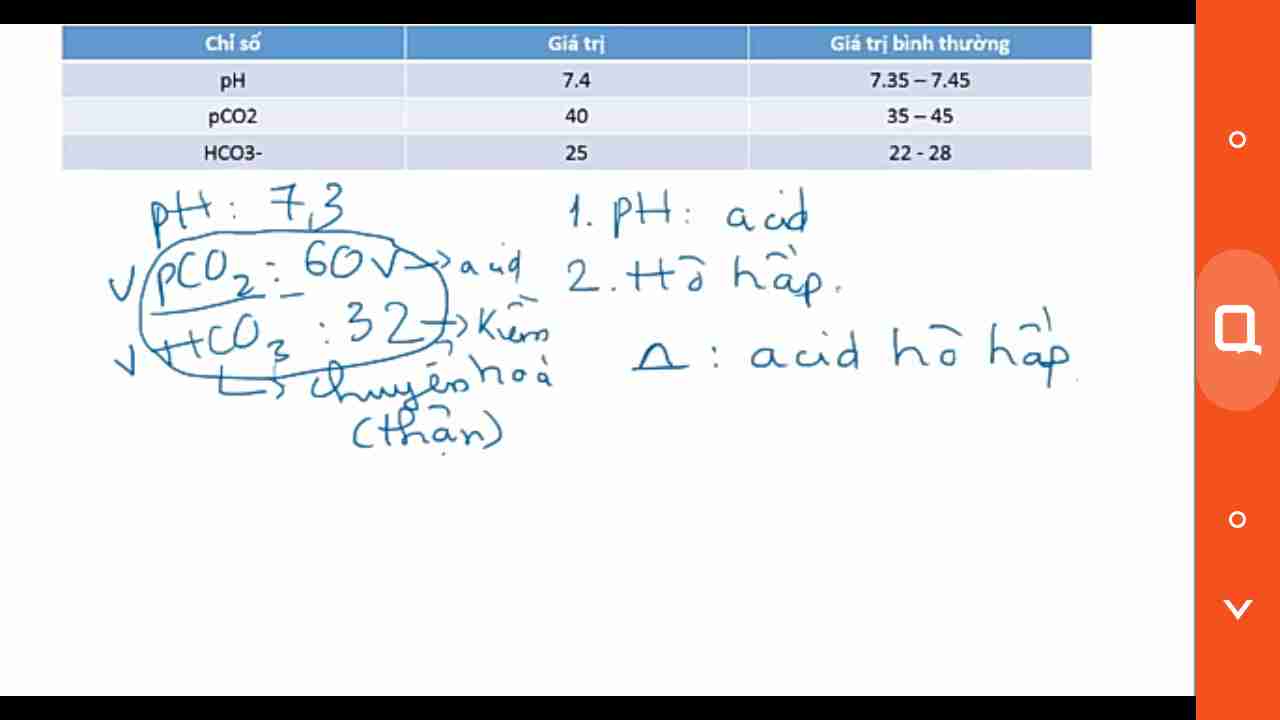 Chỉ số Giá trị Giá trị bình thường
pH 7.4 7.35 – 7.45
pCO2 40 35 – 45
HCO3- 25 22 - 28
pH: 7,3
pCO2: 60 → acid
HCO3: 32 → Kiềm
chuyển hoá
(thận)
1. pH: acid
2. Hô hấp.
Δ: acid hô hấp.